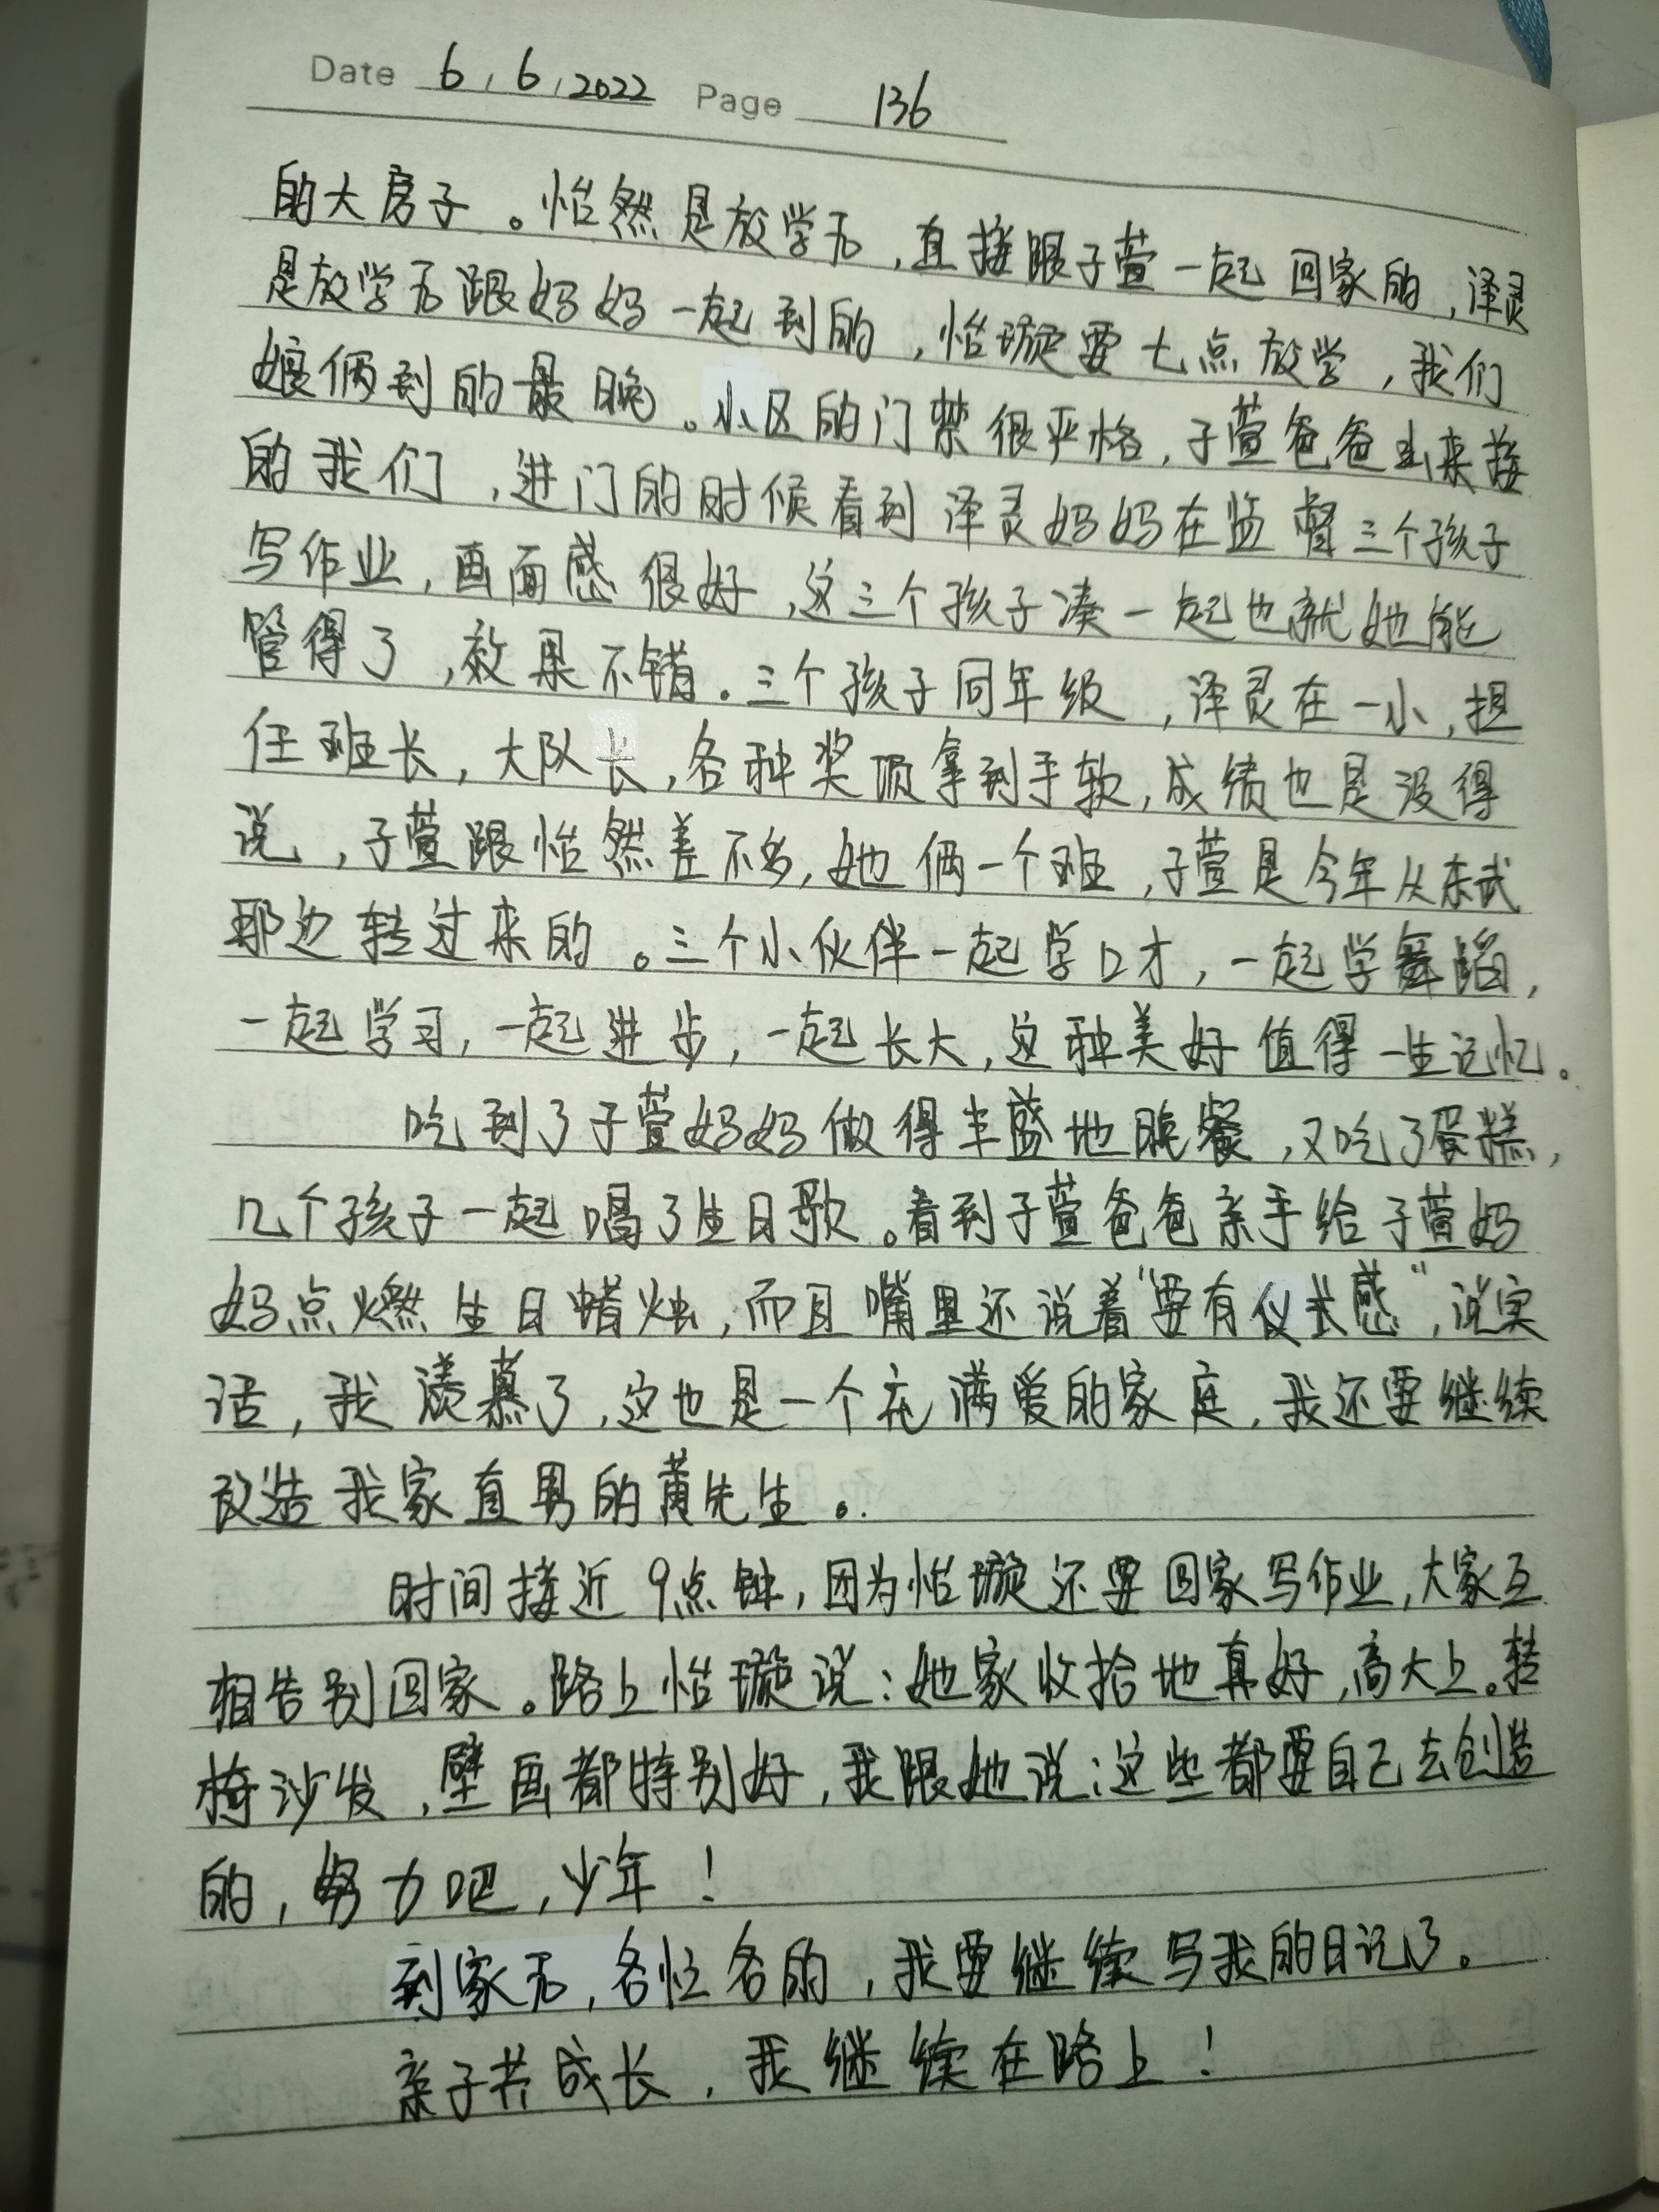 Date 6 / 6 / 2022 Page 136
的大房子。怡然是放学后,直接跟子萱一起回家的,泽灵
是放学后跟妈妈一起到的,怡璇要七点放学,我们
娘俩到的最晚。小区的门禁很严格,子萱爸爸出来接
的我们,进门的时候看到泽灵妈妈在监督三个孩子
写作业,画面感很好,这三个孩子凑一起也就她能
管得了,效果不错。三个孩子同年级,泽灵在一小,担
任班长,大队长,各种奖项拿到手软,成绩也是没得
说,子萱跟怡然差不多,她俩一个班,子萱是今年从东武
那边转过来的。三个小伙伴一起学口才,一起学舞蹈,
一起学习,一起进步,一起长大,这种美好值得一生记忆。
吃到了子萱妈妈做得丰盛地晚餐,又吃了蛋糕,
几个孩子一起唱了生日歌。看到子萱爸爸亲手给子萱妈
妈点燃生日蜡烛,而且嘴里还说着“要有仪式感”,说实
话,我羡慕了,这也是一个充满爱的家庭,我还要继续
改造我家直男的黄先生。
时间接近9点钟,因为怡璇还要回家写作业,大家互
相告别回家。路上怡璇说:她家收拾地真好,高大上。转
椅沙发,壁画都特别好,我跟她说:这些都要自己去创造
的,努力吧,少年!
到家后,各忙各的,我要继续写我的日记了。
亲子共成长,我继续在路上!